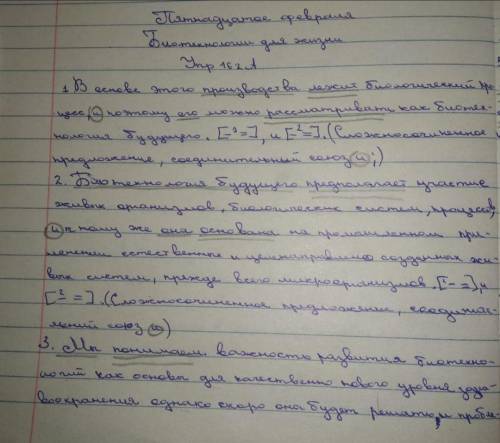 Пятнадцатое февраля
Биотехнологии для жизни
Упр 162А
1. В основе этого производства лежит биологический про-
цесс, и поэтому его можно рассматривать как биотех-
нология будущего. [– =], и [– =]. (Сложносочиненное
предложение, соединительный союз и;)
2. Биотехнология будущего предполагает участие
живых организмов, биологических систем, процессов,
и к тому же она основана на промышленном при-
менении естественных и целенаправленно созданных жи-
вых систем, прежде всего микроорганизмов. [– =], и
[– =]. (Сложносочиненное предложение, соедини
тельный союз и)
3. Мы понимаем важность развития биотехно-
логий как основы для качественно нового уровня здра-
воохранения однако скоро она будет решать, и пробле-